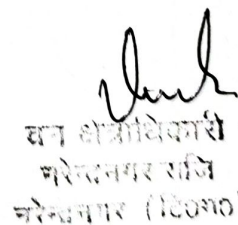 वन क्षेत्राधिकारी
नरेन्द्रनगर राजि
नरेन्द्रनगर (टि०ग०)